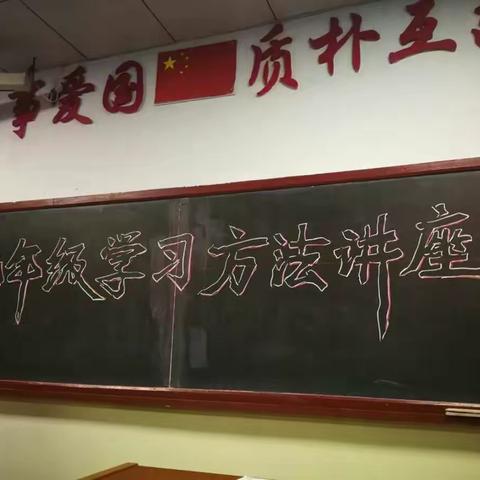 事爱国 质朴互
年级学习方法讲座